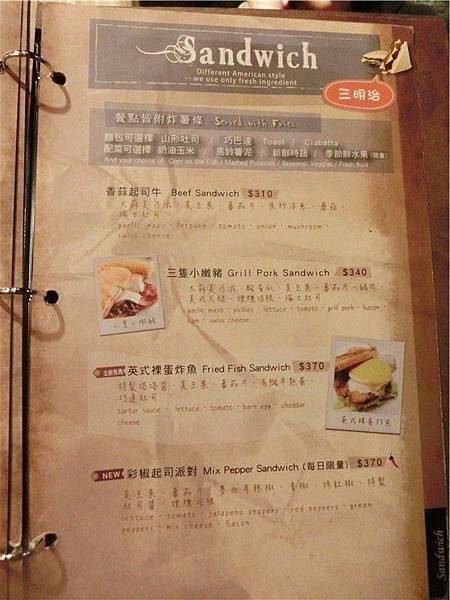 Sandwich
Different American style
we use only fresh ingredient
三明治
餐點皆附炸薯條 Served with Fries
麵包可選擇 山形吐司 / 巧巴達 Toast / Ciabatta
配菜可選擇 奶油玉米 / 馬鈴薯泥 / 新鮮時蔬 / 季節鮮水果(限量)
And your choice of Corn on the Cob / Mashed Potatoes / Seasonal Veggies / Fresh fruit
香蒜起司牛 Beef Sandwich $310
大蒜美乃滋、美生菜、番茄片、焦炒洋蔥、蘑菇、
瑞士起司
garlic mayo · lettuce · tomato · onion · mushroom ·
swiss cheese
三隻小嫩豬 Grill Pork Sandwich $340
大蒜美乃滋、酸黃瓜、美生菜、番茄片、豬肉、
美式火腿、煙燻培根、瑞士起司
garlic mayo · pickles · lettuce · tomato · grill pork · bacon ·
ham · swiss cheese
三隻小嫩豬
英式裸蛋炸魚 Fried Fish Sandwich $370
特製塔塔醬、美生菜、番茄片、有機半熟蛋、
巧達起司
tartar sauce · lettuce · tomato · bare egg · cheddar
cheese
英式裸蛋炸魚
NEW 彩椒起司派對 Mix Pepper Sandwich (每日限量) $370
美生菜、番茄片、墨西哥辣椒、青椒、烤紅椒、特製
起司醬、煙燻培根
lettuce · tomato · jalapeno peppers · red peppers · green
peppers · mix cheese · Bacon
Sandwich